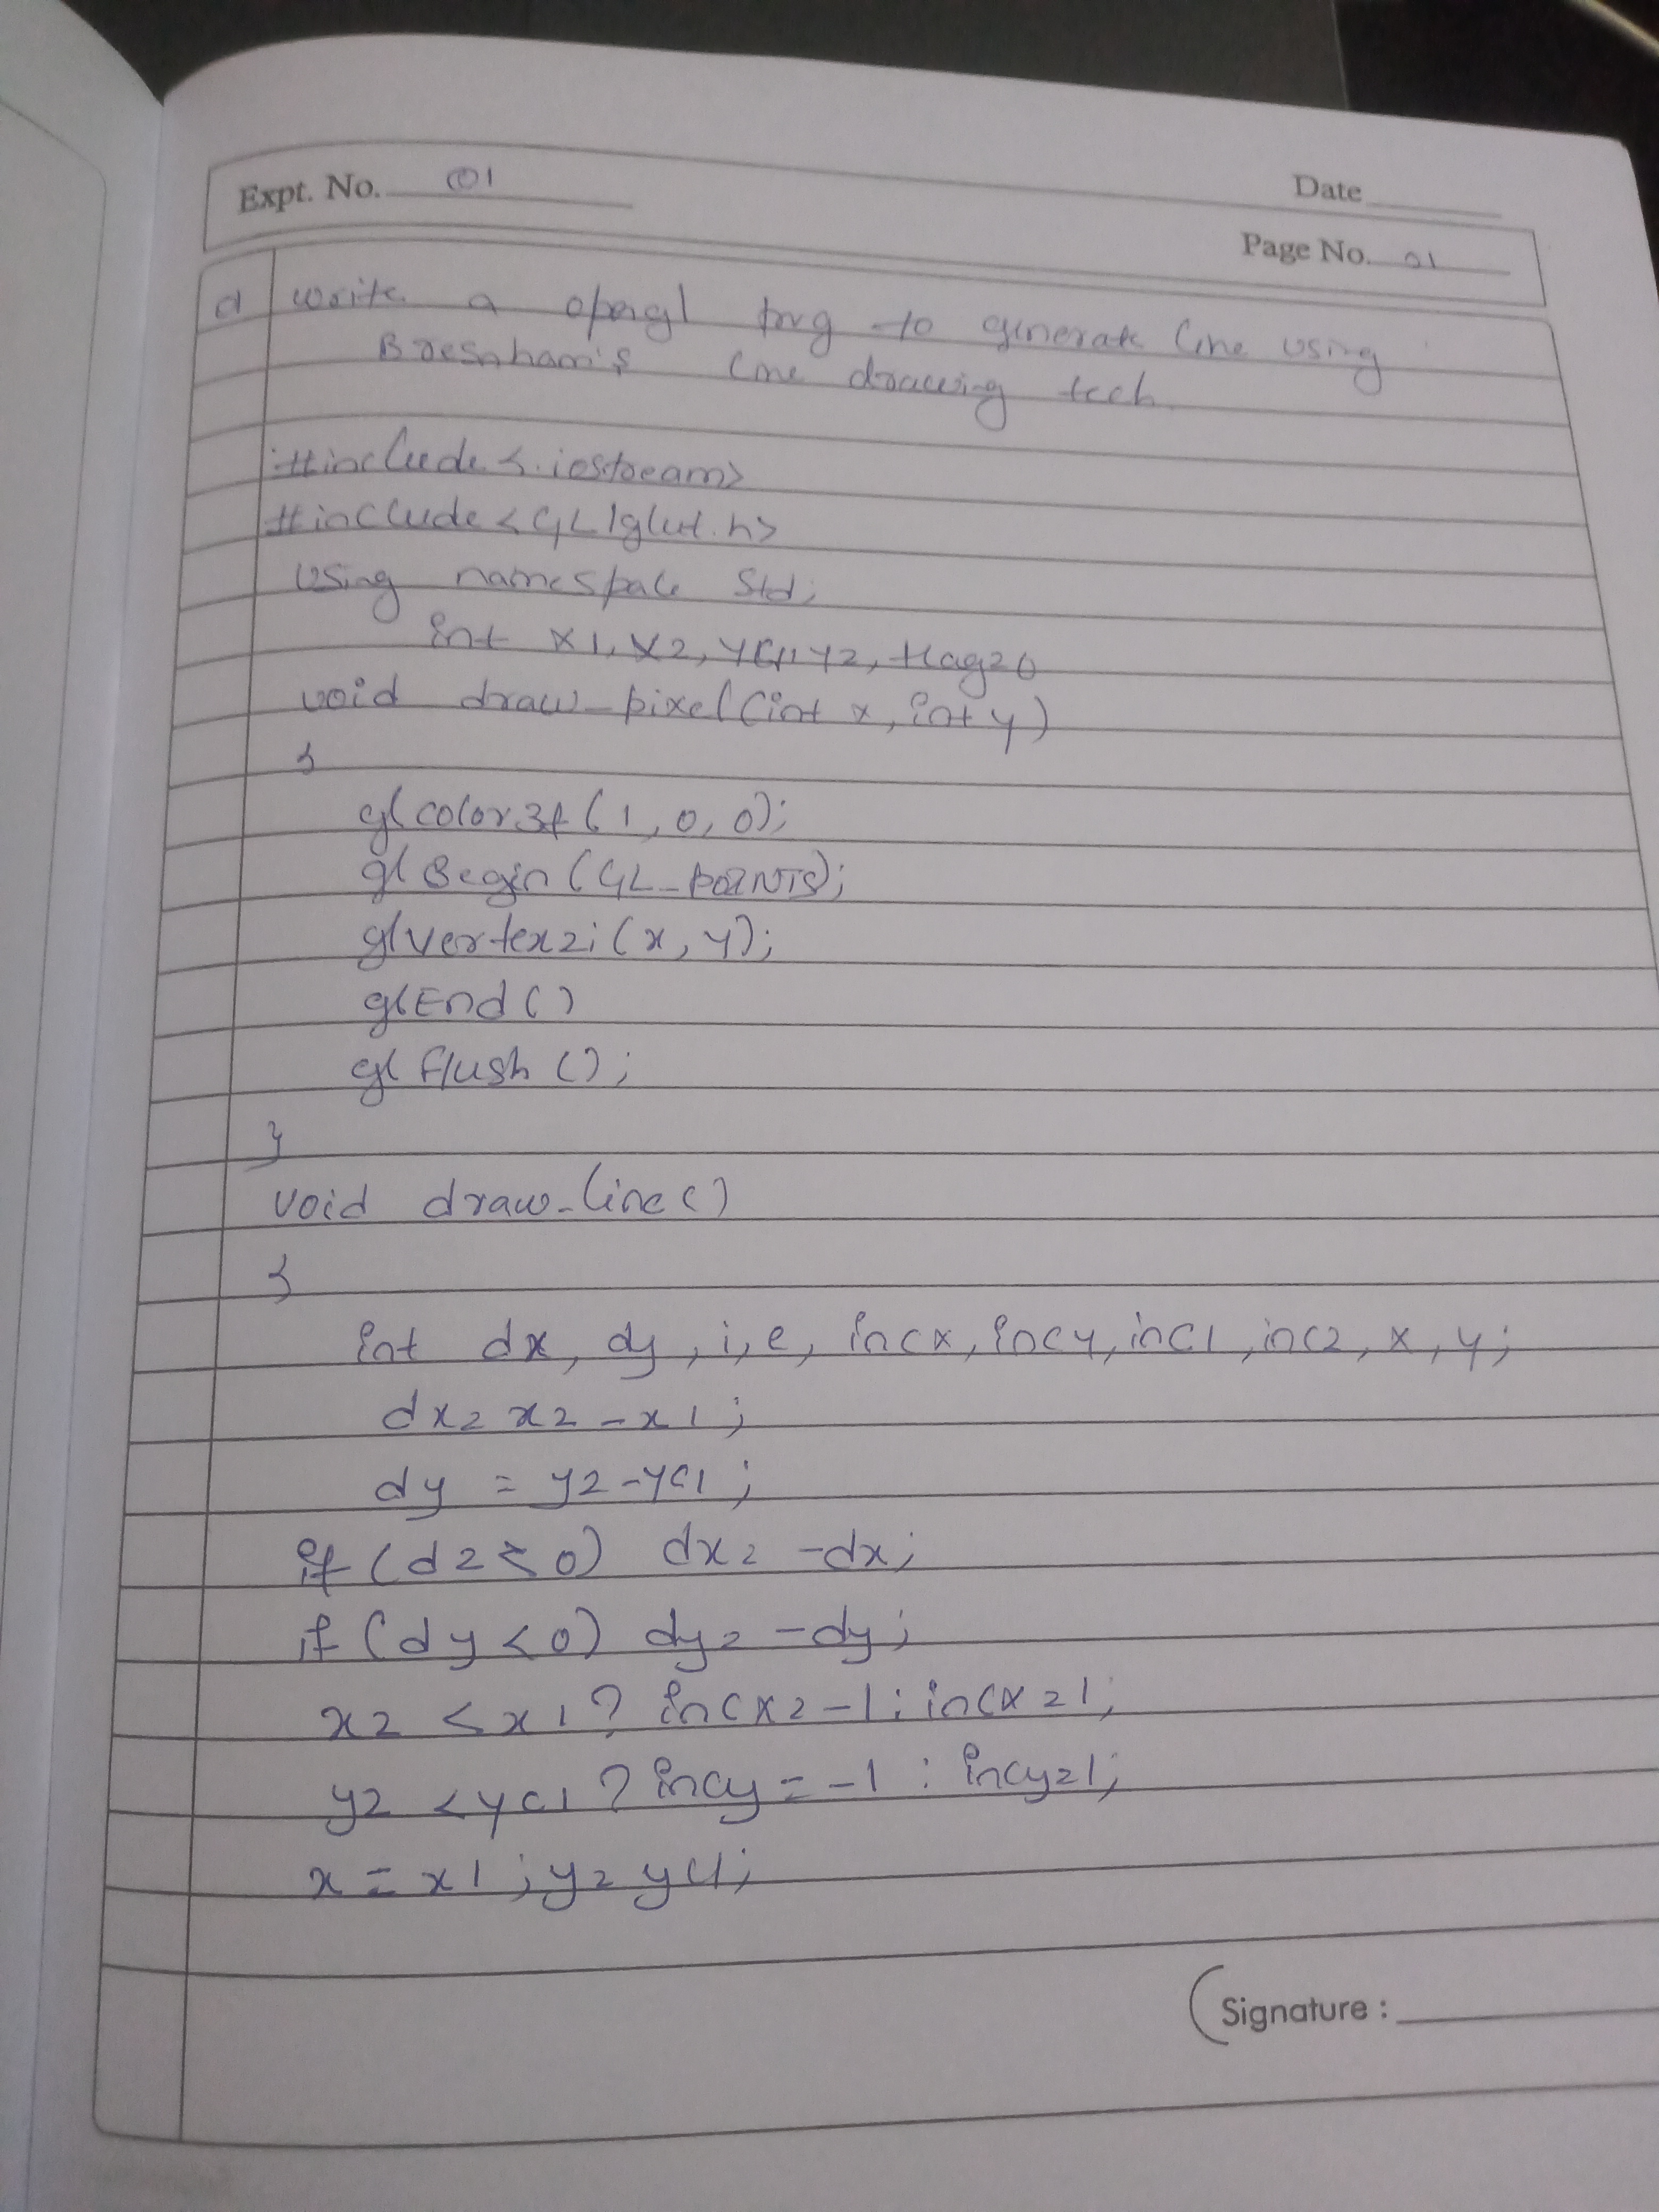 Expt. No. 01
Date
Page No. 01
write a opengl prg to generate line using
Bresnham's line drawing tech.
#include <iostream>
#include <GL/glut.h>
using namespace std;
int x1, x2, yc1, y2, flag=0
void draw_pixel(int x, int y)
{
glcolor3f(1, 0, 0);
glBegin(GL_POINTS);
glvertex2i(x, y);
glEnd()
glflush();
}
void draw_line()
{
int dx, dy, i, e, incx, incy, inc1, inc2, x, y;
dx= x2 - x1;
dy = y2 - yc1;
if (d2<0) dx= -dx;
if (dy<0) dy= -dy;
x2 < x1 ? incx= -1 : incx=1;
y2 < yc1 ? incy = -1 : incy=1;
x = x1; y= yc1;
Signature :